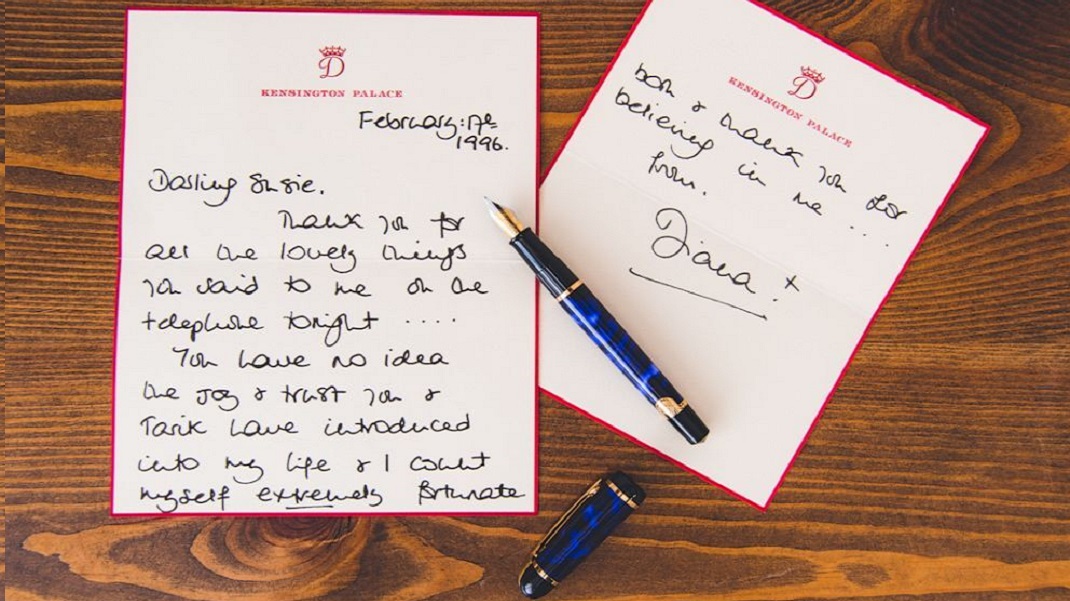 D
KENSINGTON PALACE
February: 17th
1996.
Darling Susie.
Thank you for
all the lovely things
you said to me on the
telephone tonight ....
You have no idea
the joy & trust you &
Tarik have introduced
into my life & I count
myself extremely fortunate
D
KENSINGTON PALACE
both & thank you for
believing in me ....
from.
Diana. x